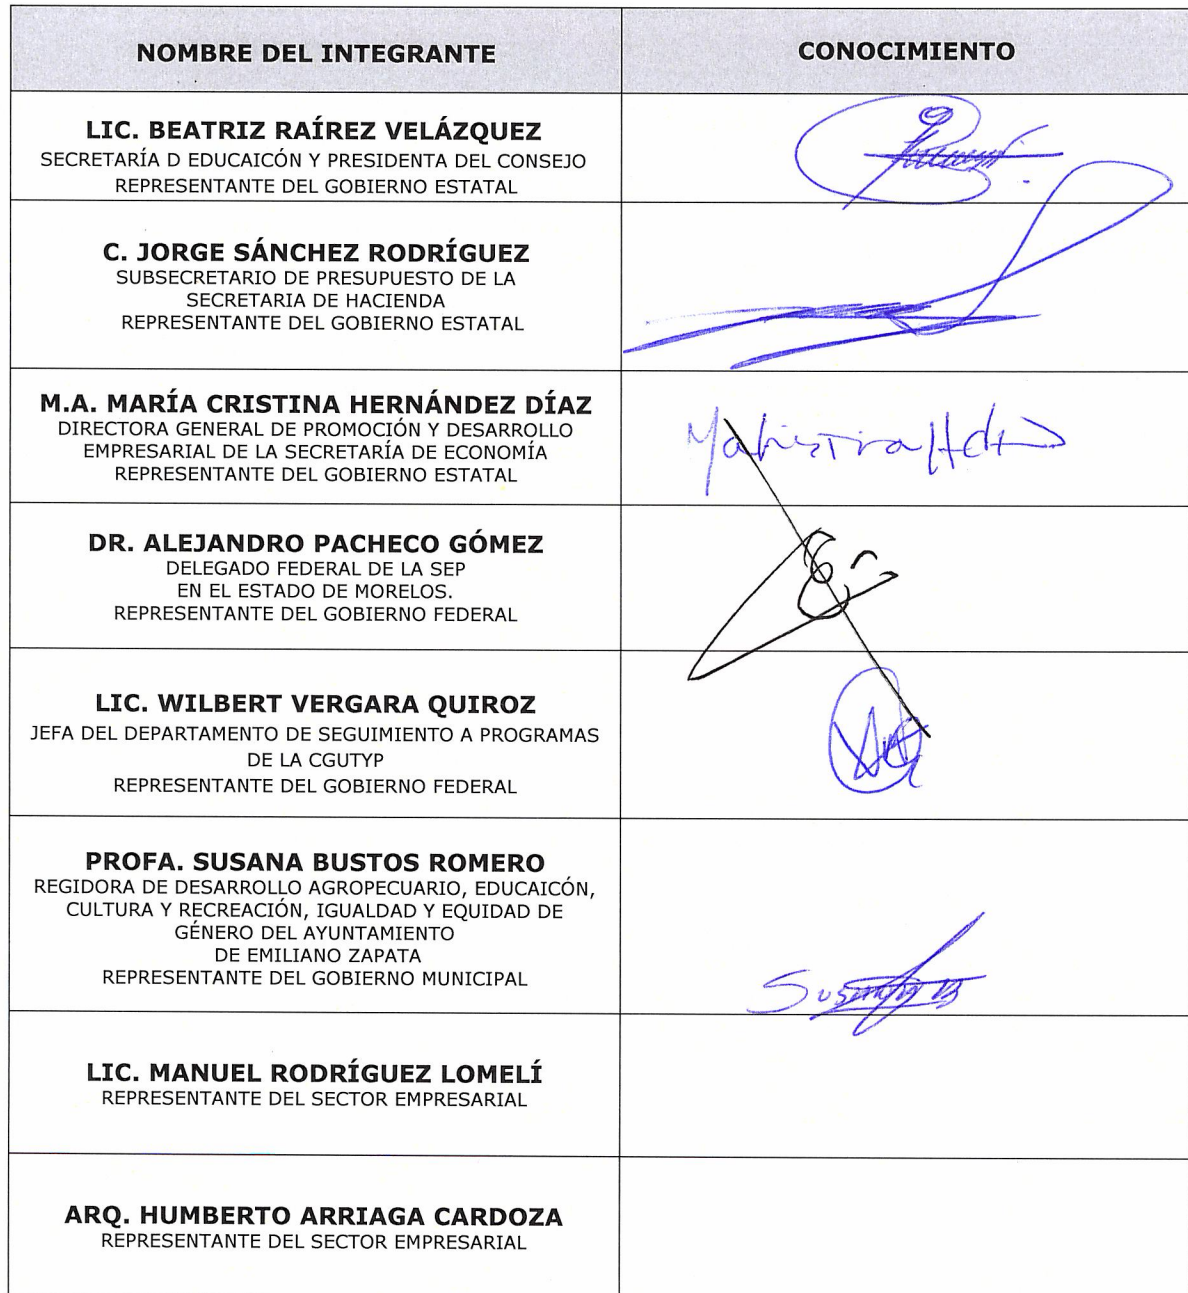 NOMBRE DEL INTEGRANTE
CONOCIMIENTO
LIC. BEATRIZ RAÍREZ VELÁZQUEZ
SECRETARÍA D EDUCAICÓN Y PRESIDENTA DEL CONSEJO
REPRESENTANTE DEL GOBIERNO ESTATAL
C. JORGE SÁNCHEZ RODRÍGUEZ
SUBSECRETARIO DE PRESUPUESTO DE LA
SECRETARIA DE HACIENDA
REPRESENTANTE DEL GOBIERNO ESTATAL
M.A. MARÍA CRISTINA HERNÁNDEZ DÍAZ
DIRECTORA GENERAL DE PROMOCIÓN Y DESARROLLO
EMPRESARIAL DE LA SECRETARÍA DE ECONOMÍA
REPRESENTANTE DEL GOBIERNO ESTATAL
DR. ALEJANDRO PACHECO GÓMEZ
DELEGADO FEDERAL DE LA SEP
EN EL ESTADO DE MORELOS.
REPRESENTANTE DEL GOBIERNO FEDERAL
LIC. WILBERT VERGARA QUIROZ
JEFA DEL DEPARTAMENTO DE SEGUIMIENTO A PROGRAMAS
DE LA CGUTYP
REPRESENTANTE DEL GOBIERNO FEDERAL
PROFA. SUSANA BUSTOS ROMERO
REGIDORA DE DESARROLLO AGROPECUARIO, EDUCAICÓN,
CULTURA Y RECREACIÓN, IGUALDAD Y EQUIDAD DE
GÉNERO DEL AYUNTAMIENTO
DE EMILIANO ZAPATA
REPRESENTANTE DEL GOBIERNO MUNICIPAL
LIC. MANUEL RODRÍGUEZ LOMELÍ
REPRESENTANTE DEL SECTOR EMPRESARIAL
ARQ. HUMBERTO ARRIAGA CARDOZA
REPRESENTANTE DEL SECTOR EMPRESARIAL